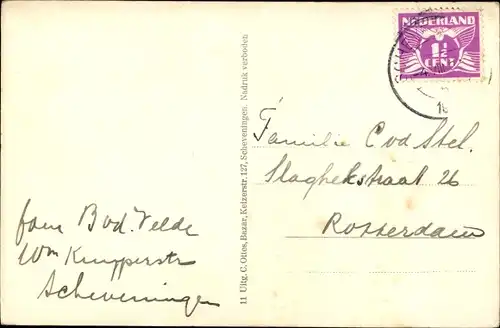 NEDERLAND
1½
CENT
Familie C vd Stel.
Slaghekstraat 26
Rotterdam
fam Bvd. Velde
Wm Kuyperstr
Scheveningen
11 Uitg. C. Ottes, Bazar, Keizerstr. 127, Scheveningen. Nadruk verboden.